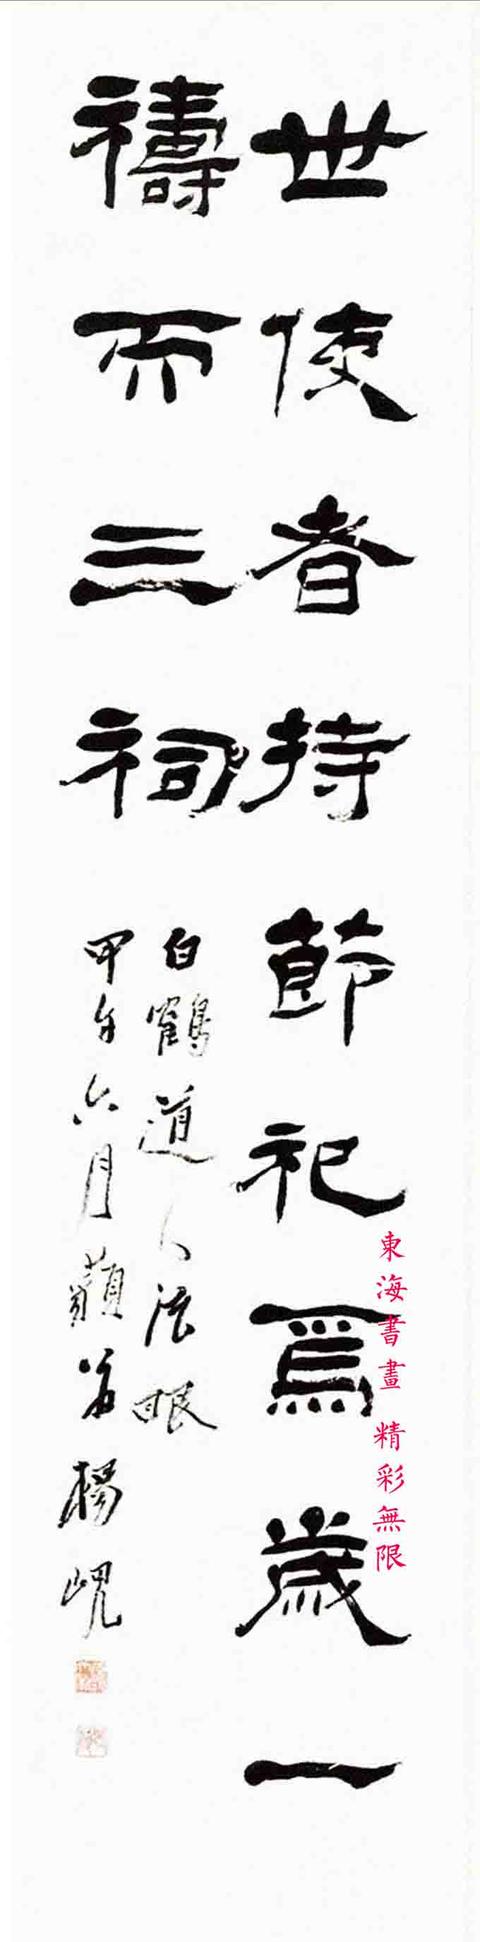 世使者持節祀焉歲一
禱而三祠
白鶴道人法眼
甲午六月藐翁楊峴
東海書畫 精彩無限